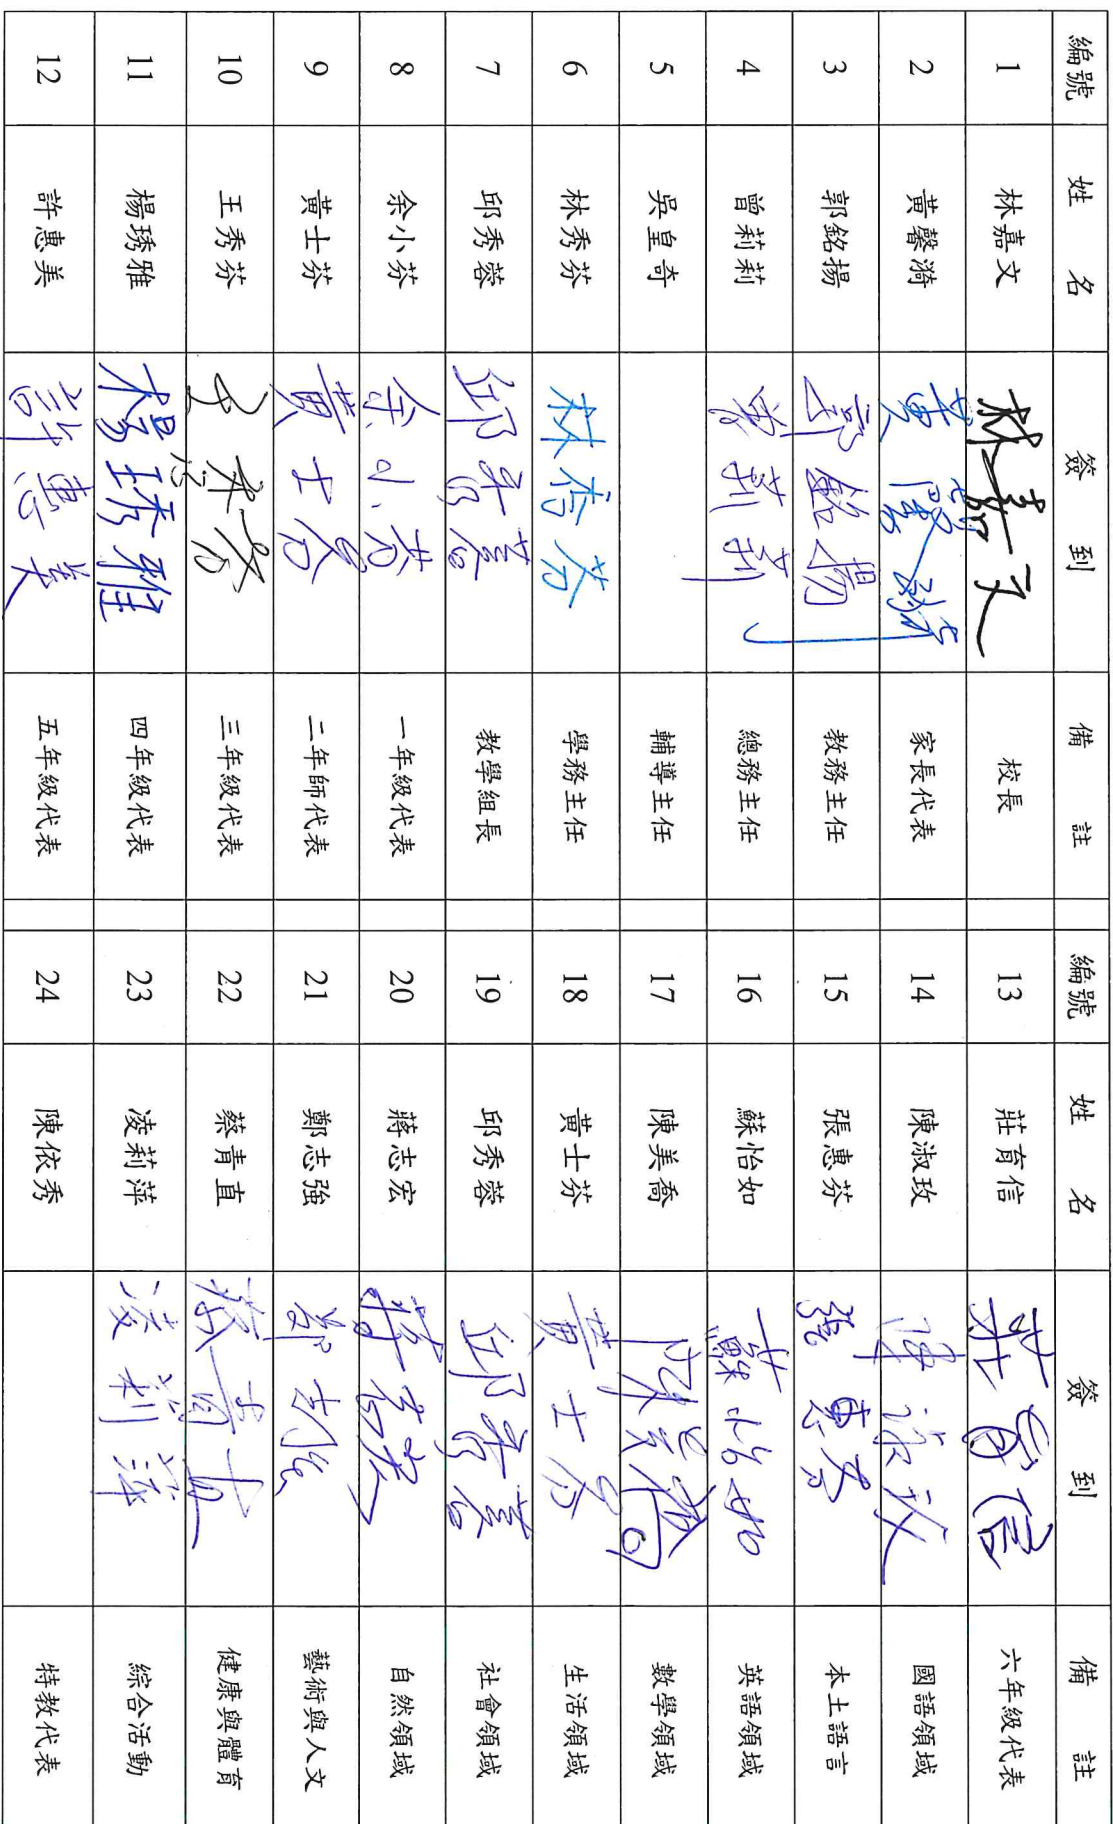 編號 姓名 簽到 備註 編號 姓名 簽到 備註
1 林嘉文 林嘉文 校長 13 莊育信 莊育信 六年級代表
2 黃馨漪 黃馨漪 家長代表 14 陳淑玫 陳淑玫 國語領域
3 郭銘揚 郭銘揚 教務主任 15 張惠芬 張惠芬 本土語言
4 曾莉莉 曾莉莉 總務主任 16 蘇怡如 蘇怡如 英語領域
5 吳皇奇 輔導主任 17 陳美喬 陳美喬 數學領域
6 林秀芬 林秀芬 學務主任 18 黃士芬 黃士芬 生活領域
7 邱秀蓉 邱秀蓉 教學組長 19 邱秀蓉 邱秀蓉 社會領域
8 余小芬 余小芬 一年級代表 20 蔣志宏 蔣志宏 自然領域
9 黃士芬 黃士芬 二年師代表 21 鄭志強 鄭志強 藝術與人文
10 王秀芬 王秀芬 三年級代表 22 蔡青直 蔡青直 健康與體育
11 楊琇雅 楊琇雅 四年級代表 23 凌莉萍 凌莉萍 綜合活動
12 許惠美 許惠美 五年級代表 24 陳依秀 特教代表